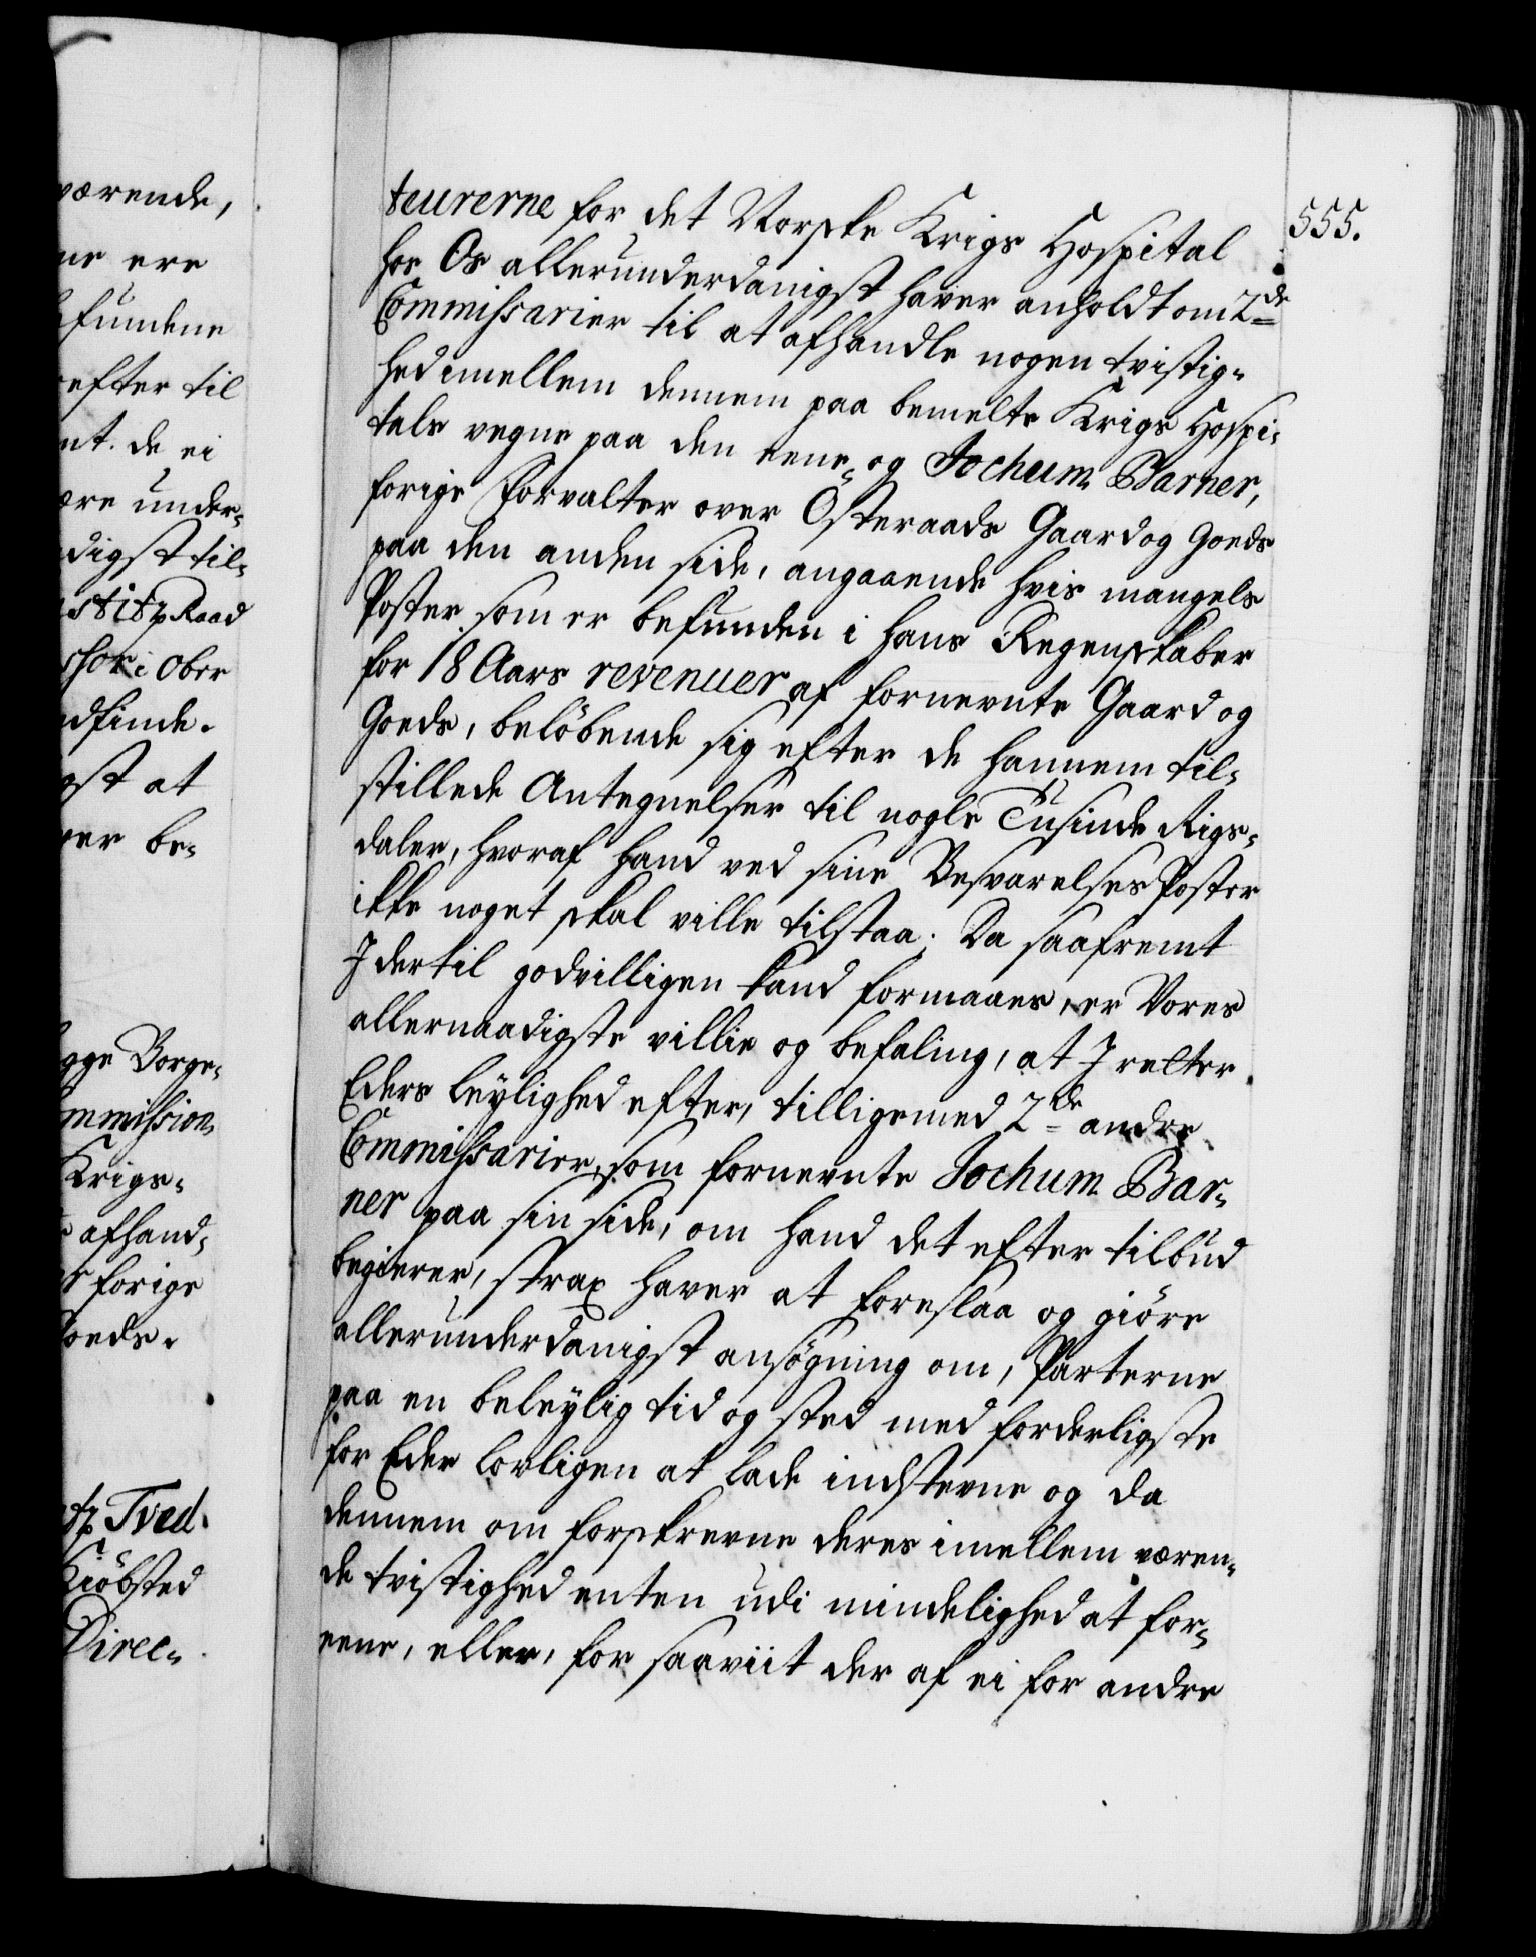 værende,
ne ere
fundene
efter til
nt. de ei
ære under¬
digst til¬
stitz Raad
shor i Ober
dfinde.
gst at
ver be¬
gge Borge¬
mmission
Krigs¬
afhand¬
forige
Goeds.
tz Tved.
Kiöbsted
Direc¬
555.
teurerne for det Norske Krigs Hospital
hos Os allerunderdanigst haver anholdt om 2de
Commissarier til at afhandle nogen tvistig¬
hed imellem dennem paa bemelte Krigs Hospi¬
tals vegne paa den eene, og Jochum Barner,
forige Forvalter over Österaads Gaard og Goeds
paa den anden side, angaaende hvis mangels
Poster som er befunden i hans Regenskaber
for 18 Aars revenuer af fornevnte Gaard og
Goeds, beløbende sig efter de hannem til¬
stillede Antegnelser til nogle Tusinde Rigs¬
daler, hvoraf hand ved sine Besvarelses Poster
ikke noget skal ville tilstaa; Da saafremt
I dertil godvilligen kand formaaes, er Vores
allernaadigste villie og befaling, at I retter
Eders leylighed efter, tilligemed 2de andre
Commissarier, som fornevnte Jochum Bar¬
ner paa sin side, om hand det efter tilbud
begierer, strax haver at foreslaa og giöre
allerunderdanigst ansøgning om, Parterne
paa en beleylig tid og sted med forderligste
for Eder lovligen at lade indstevne og da
dennem om forskrevne deres imellem væren¬
de tvistighed enten udi mindelighed at for¬
eene, eller, for saaviit der af ei for andre